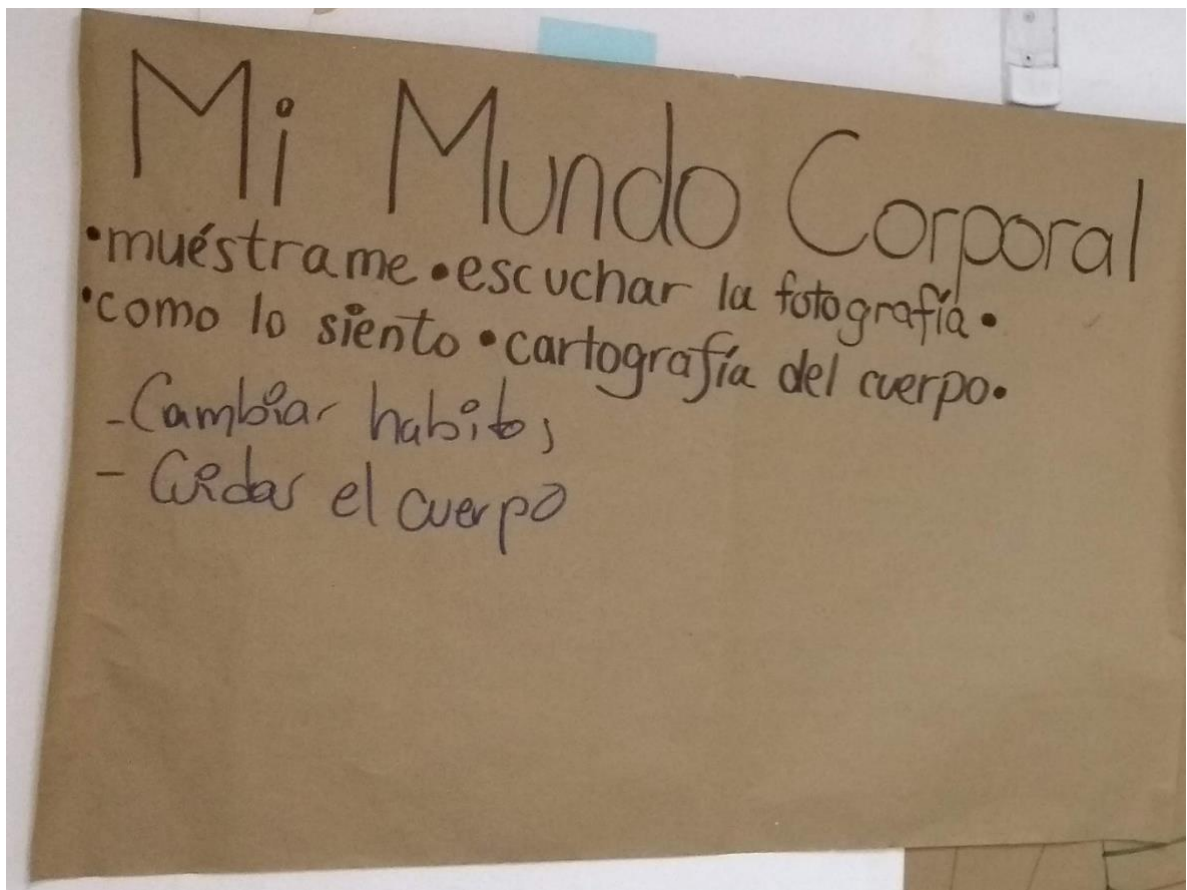 Mi Mundo Corporal
•muéstrame •escuchar la fotografía•
•como lo siento •cartografía del cuerpo•
-Cambiar habitos
- Cuidar el cuerpo